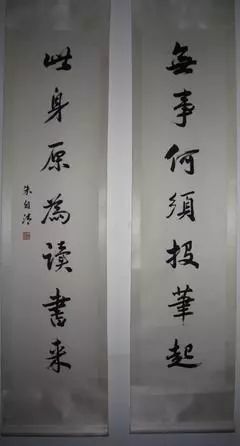 無事何須投筆起
此身原為讀書来
朱自清